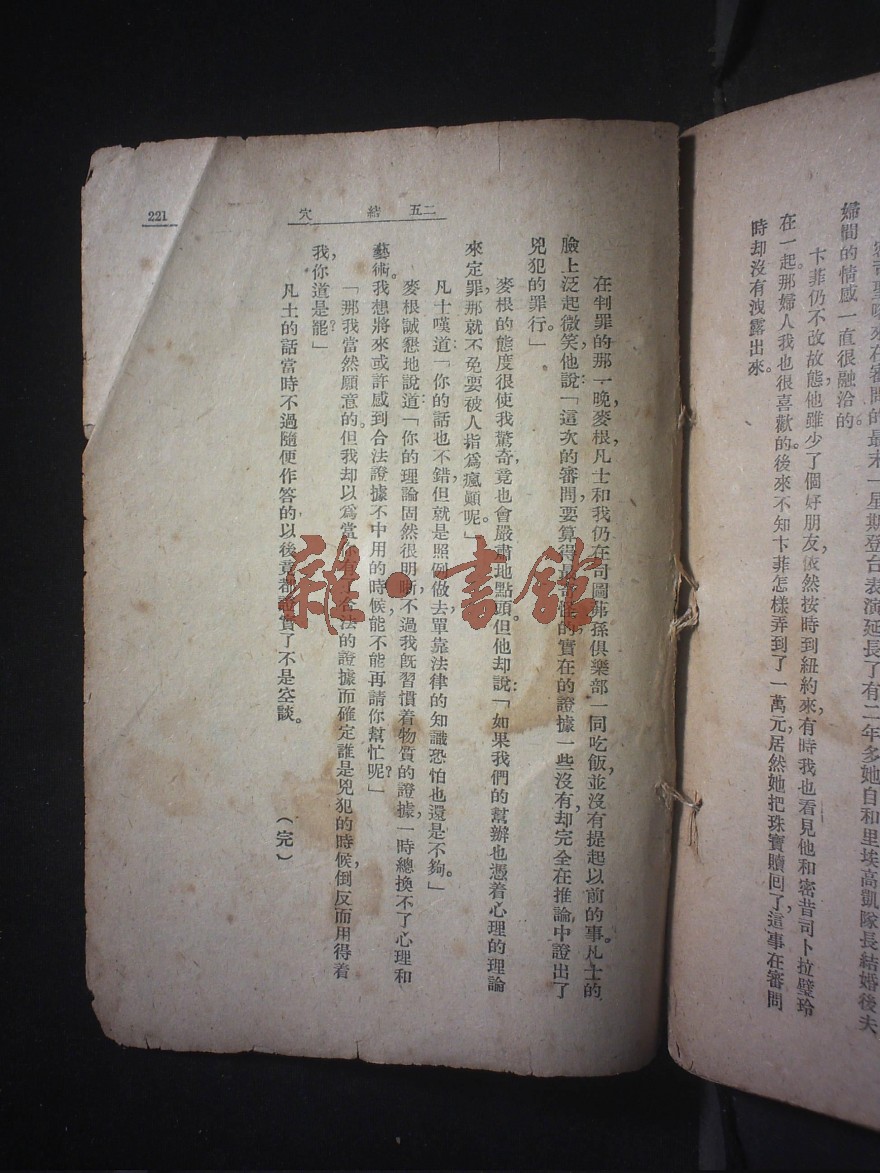 婦間的情感一直很融洽的。
卞菲仍不改故態他雖少了個好朋友依然按時到紐約來有時我也看見他和密昔司卜拉璧玲
在一起那婦人我也很喜歡的後來不知卞菲怎樣弄到了一萬元居然她把珠寶贖回了這事在審問
時却沒有洩露出來。
221
二五 結穴
在判罪的那一晚麥根凡士和我仍在司圖弗孫俱樂部一同吃飯並沒有提起以前的事。凡士的
臉上泛起微笑他說：「這次的審問要算得最奇怪的實在的證據一些沒有却完全在推論中證出了
兇犯的罪行。」
麥根的態度很使我驚奇竟也會嚴肅地點頭。但他却說：「如果我們的幫辦也憑着心理的理論
來定罪那就不免要被人指爲瘋顛呢。」
凡士嘆道：「你的話也不錯但就是照例做去單靠法律的知識恐怕也還是不夠。」
麥根誠懇地說道：「你的理論固然很明晰不過我旣習慣着物質的證據一時總換不了心理和
藝術。我想將來或許感到合法證據不中用的時候能不能再請你幫忙呢？」
「那我當然願意的。但我却以爲當你有了合法的證據而確定誰是兇犯的時候倒反而用得着
我你道是罷？」
凡士的話當時不過隨便作答的以後竟都證實了不是空談。
（完）
雜·書館